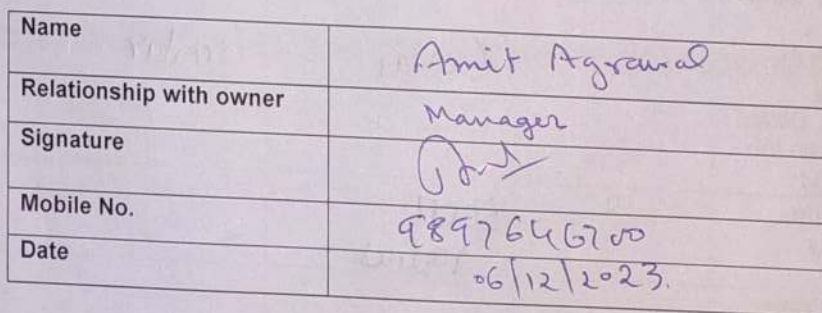 Name Amit Agrawal
Relationship with owner Manager
Signature
Mobile No. 9897646700
Date 06/12/2023.